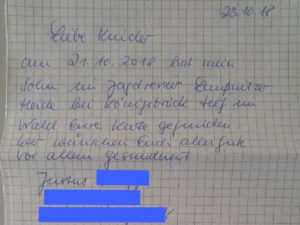 23.10.18
Liebe Kinder
am 21.10.2018 hat mein
Sohn im Jagdrevier
Heide bei Königsbrück tief im
Wald Eure Karte gefunden.
Wir wünschen Euch alles gute
vor allem gesundheit